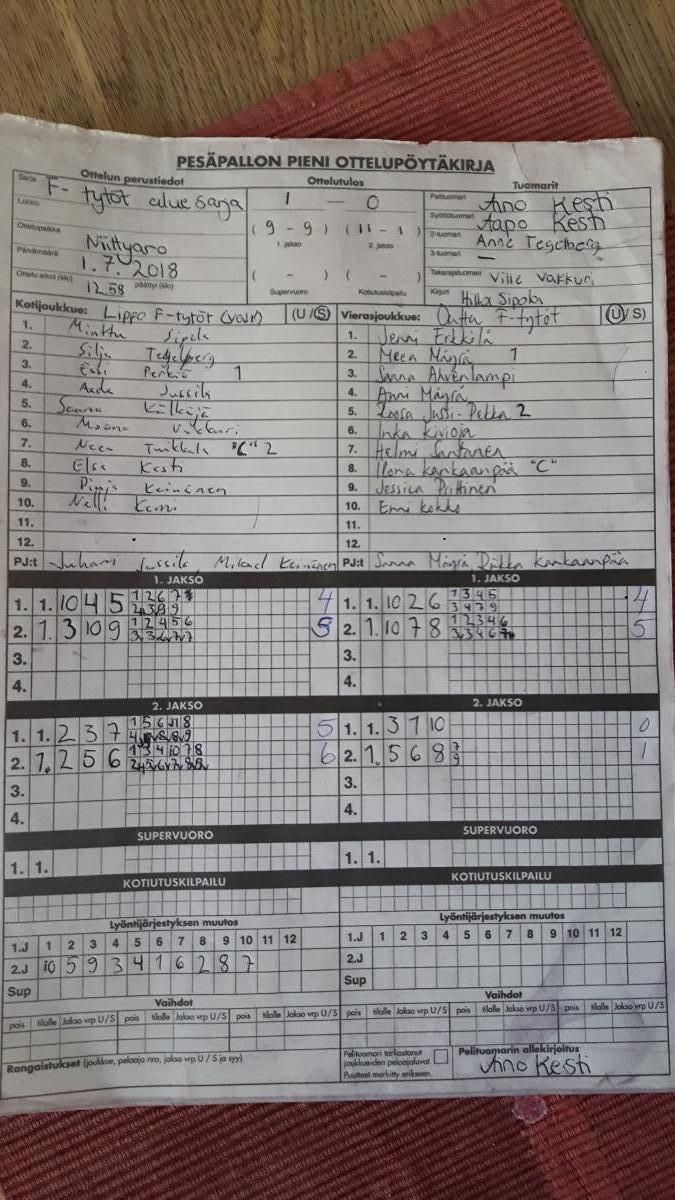 PESÄPALLON PIENI OTTELUPÖYTÄKIRJA
Ottelun perustiedot Ottelutulos Tuomarit
Sarja F-tytöt aluesarja
Lohko
Ottelupaikka Niittyaro
Päivämäärä 1.7.2018
Ottelu alkoi (klo) 12.58 päättyi (klo)
1 — 0
( 9 - 9 ) ( 11 - 1 )
1. jakso 2. jakso
( - ) ( - )
Supervuoro Kotiutuskilpailu
Pelituomari Aino Kesti
Syöttötuomari Aapo Kesti
2-tuomari Anne Tegelberg
3-tuomari —
Takarajatuomari Ville Vakkuri
Kirjuri Hilka Sipola
Kotijoukkue: Lippo F-tytöt (U/S) Vierasjoukkue: F-tytöt (U/S)
1. Minttu Sipola 1. Jenni Erkkilä
2. Silja Tegelberg 2. Meea Mäyrä 1
3. Essi 1 3. Sanna Ahvenlampi
4. Jussila 4. Anni Mäyrä
5. Sanna 5. Roosa Jussi-Pekka 2
6. 6. Inka Kivioja
7. Neea "C" 2 7. Helmi Santanen
8. Elsa Kesti 8. Ilona Kankaanpää "C"
9. Pinja Keinänen 9. Jessica Piittinen
10. Nelli 10. Emmi Kokko
11. 11.
12. 12.
PJ:t Juhani Jussila, Mikael Keinänen PJ:t Sanna Mäyrä, Riikka Kankaanpää
1. JAKSO 1. JAKSO
1. 1. 10 4 5 4 1. 1. 10 2 6 1 3 4 5 3 4 7 9 4
2. 1. 3 10 9 1 2 4 5 6 5 2. 1. 10 7 8 1 2 3 4 6 5
3. 3.
4. 4.
2. JAKSO 2. JAKSO
1. 1. 2 3 7 5 1. 1. 3 7 10 0
2. 1. 2 5 6 6 2. 1. 5 6 8 7 9 1
3. 3.
4. 4.
SUPERVUORO SUPERVUORO
1. 1. 1. 1.
KOTIUTUSKILPAILU KOTIUTUSKILPAILU
Lyöntijärjestyksen muutos Lyöntijärjestyksen muutos
1.J 1 2 3 4 5 6 7 8 9 10 11 12 1.J 1 2 3 4 5 6 7 8 9 10 11 12
2.J 10 5 9 3 4 1 6 2 8 7 2.J
Sup Sup
Vaihdot Vaihdot
pois tilalle Jakso vrp U/S pois tilalle Jakso vrp U/S pois tilalle Jakso vrp U/S pois tilalle Jakso vrp U/S pois tilalle Jakso vrp U/S pois tilalle Jakso vrp U/S
Rangaistukset (joukkue, pelaaja nro, jakso vrp U / S ja syy)
Pelituomari tarkastanut joukkueiden pelaajaluvat
Puutteet merkitty erikseen.
Pelituomarin allekirjoitus
Aino Kesti